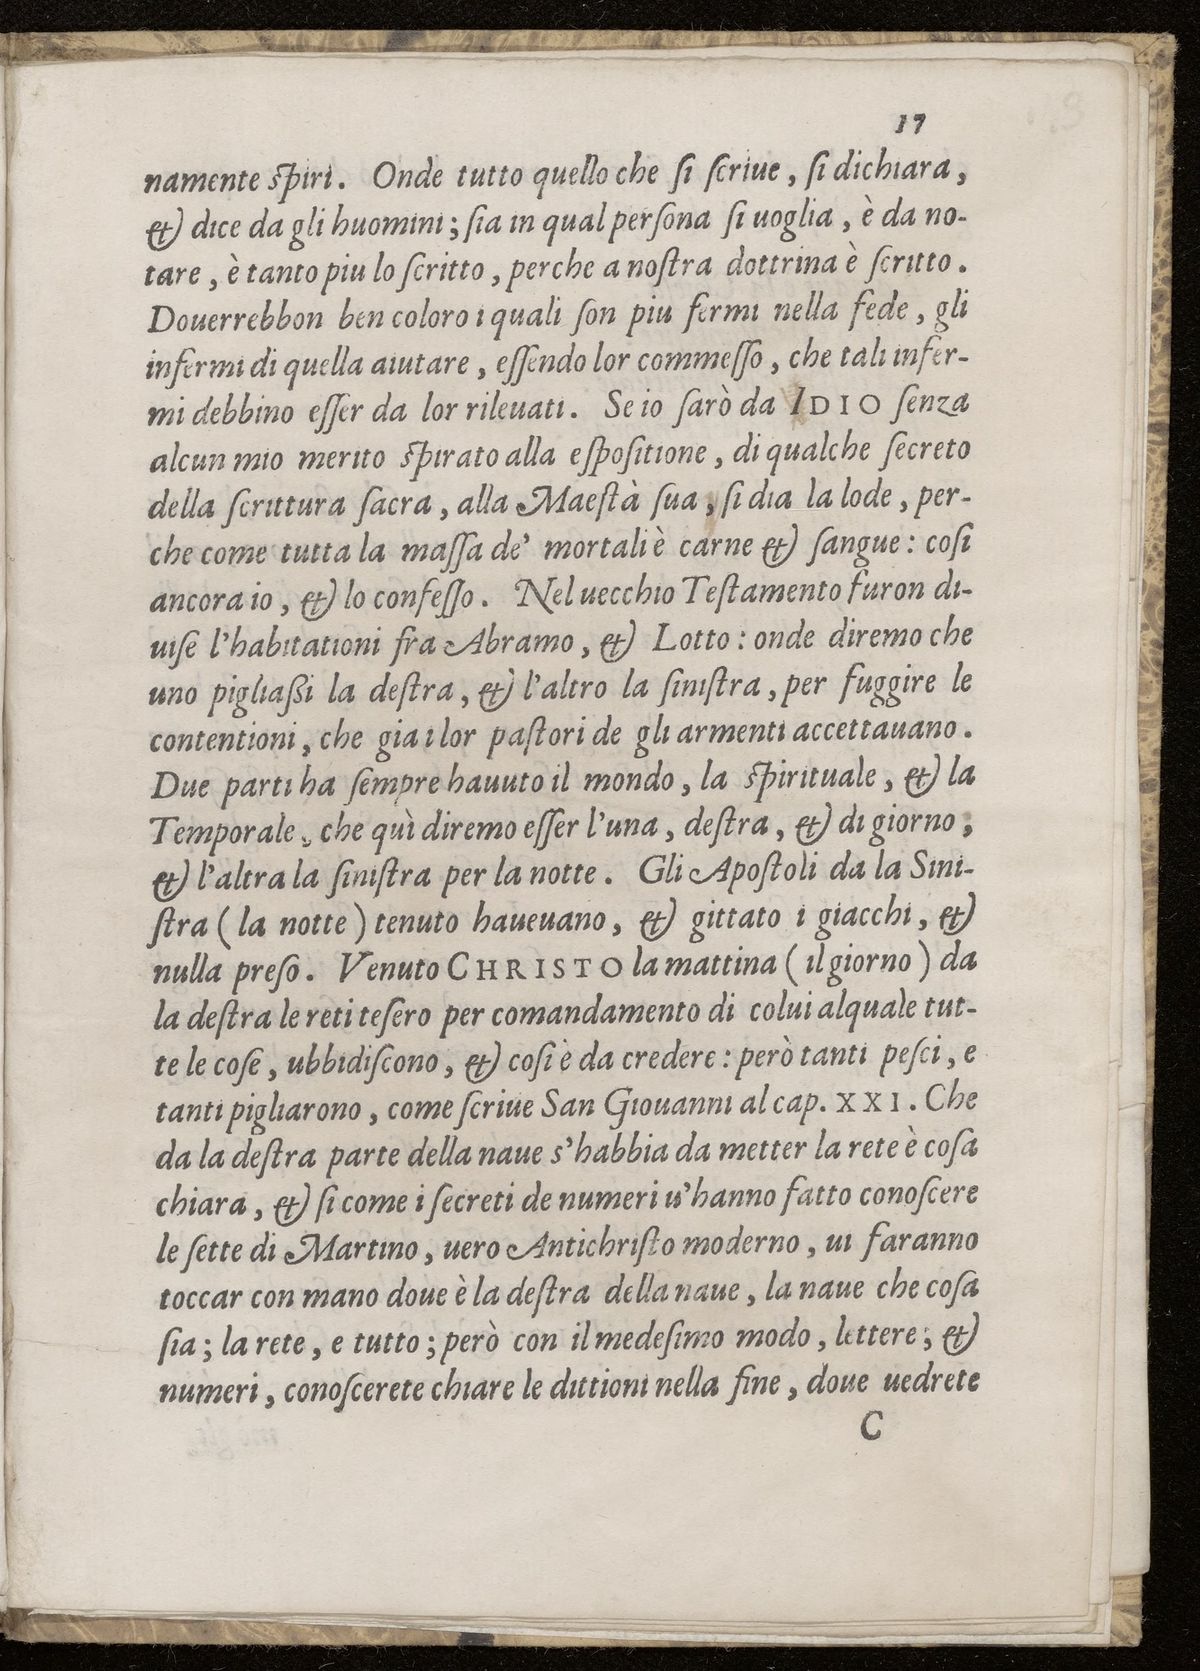 17
namente ſpiri. Onde tutto quello che ſi ſcriue, ſi dichiara,
& dice da gli huomini; ſia in qual perſona ſi uoglia, è da no-
tare, è tanto piu lo ſcritto, perche a noſtra dottrina è ſcritto.
Douerrebbon ben coloro i quali ſon piu fermi nella fede, gli
infermi di quella aiutare, eſſendo lor commeſſo, che tali infer-
mi debbino eſſer da lor rileuati. Se io ſarò da IDIO ſenza
alcun mio merito ſpirato alla eſpoſitione, di qualche ſecreto
della ſcrittura ſacra, alla Maeſtà ſua, ſi dia la lode, per-
che come tutta la maſſa de' mortali è carne & ſangue: coſi
ancora io, & lo confeſſo. Nel uecchio Teſtamento furon di-
uiſe l'habitationi fra Abramo, & Lotto: onde diremo che
uno pigliaßi la deſtra, & l'altro la ſiniſtra, per fuggire le
contentioni, che gia i lor paſtori de gli armenti accettauano.
Due parti ha ſempre hauuto il mondo, la ſpirituale, & la
Temporale, che quì diremo eſſer l'una, deſtra, & di giorno,
& l'altra la ſiniſtra per la notte. Gli Apoſtoli da la Sini-
ſtra (la notte) tenuto haueuano, & gittato i giacchi, &
nulla preſo. Venuto CHRISTO la mattina (il giorno) da
la deſtra le reti teſero per comandamento di colui alquale tut-
te le coſe, ubbidiſcono, & coſi è da credere: però tanti peſci, e
tanti pigliarono, come ſcriue San Giouanni al cap. XXI. Che
da la deſtra parte della naue s'habbia da metter la rete è coſa
chiara, & ſi come i ſecreti de numeri u'hanno fatto conoſcere
le ſette di Martino, uero Antichriſto moderno, ui faranno
toccar con mano doue è la deſtra della naue, la naue che coſa
ſia; la rete, e tutto; però con il medeſimo modo, lettere; &
numeri, conoſcerete chiare le dittioni nella fine, doue uedrete
C